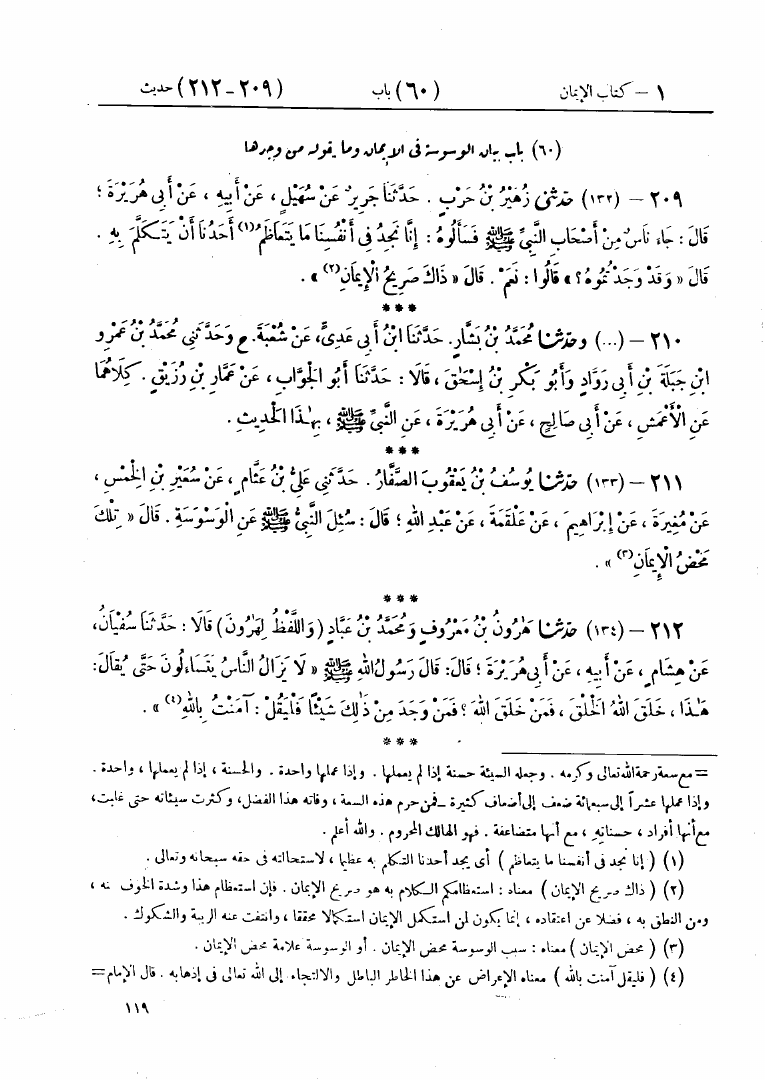 ١ – كتاب الإيمان (٦٠) باب (٢٠٩ – ٢١٢) حديث
(٦٠) باب بيان الوسوسة فى الإيمان وما يقوله من وجدها
٢٠٩ – (١٣٢) حَدَّثَنِي زُهَيْرُ بْنُ حَرْبٍ . حَدَّثَنَا جَرِيرٌ عَنْ سُهَيْلٍ ، عَنْ أَبِيهِ ، عَنْ أَبِى هُرَيْرَةَ ؛
قَالَ : جَاءَ نَاسٌ مِنْ أَصْحَابِ النَّبِيِّ ﷺ فَسَأَلُوهُ : إِنَّا نَجِدُ فِى أَنْفُسِنَا مَا يَتَعَاظَمُ(١) أَحَدُنَا أَنْ يَتَكَلَّمَ بِهِ .
قَالَ « وَقَدْ وَجَدْتُمُوهُ ؟ » قَالُوا : نَعَمْ . قَالَ « ذَاكَ صَرِيحُ الْإِيمَانِ(٢) » .
***
٢١٠ – (...) وَحَدَّثَنَا مُحَمَّدُ بْنُ بَشَّارٍ . حَدَّثَنَا ابْنُ أَبِى عَدِىٍّ، عَنْ شُعْبَةَ. ح وَحَدَّثَنِى مُحَمَّدُ بْنُ عَمْرِو
ابْنِ جَبَلَةَ بْنِ أَبِى رَوَّادٍ وَأَبُو بَكْرِ بْنُ إِسْحَٰقَ ، قَالَا : حَدَّثَنَا أَبُو الْجَوَّابِ ، عَنْ عَمَّارِ بْنِ رُزَيْقٍ . كِلَاهُمَا
عَنِ الْأَعْمَشِ ، عَنْ أَبِى صَالِحٍ ، عَنْ أَبِى هُرَيْرَةَ ، عَنِ النَّبِىِّ ﷺ ، بِهَٰذَا الْحَدِيثِ .
***
٢١١ – (١٣٣) حَدَّثَنَا يُوسُفُ بْنُ يَعْقُوبَ الصَّفَّارُ . حَدَّثَنِى عَلِىُّ بْنُ عَثَّامٍ ، عَنْ سُعَيْرِ بْنِ الْخِمْسِ ،
عَنْ مُغِيرَةَ ، عَنْ إِبْرَاهِيمَ ، عَنْ عَلْقَمَةَ ، عَنْ عَبْدِ اللهِ ؛ قَالَ : سُئِلَ النَّبِىُّ ﷺ عَنِ الْوَسْوَسَةِ . قَالَ « تِلْكَ
مَحْضُ الْإِيمَانِ(٣) » .
***
٢١٢ – (١٣٤) حَدَّثَنَا هَٰرُونُ بْنُ مَعْرُوفٍ وَمُحَمَّدُ بْنُ عَبَّادٍ ( وَاللَّفْظُ لِهَٰرُونَ ) قَالَا : حَدَّثَنَا سُفْيَانُ،
عَنْ هِشَامٍ ، عَنْ أَبِيهِ ، عَنْ أَبِى هُرَيْرَةَ ؛ قَالَ: قَالَ رَسُولُ اللهِ ﷺ « لَا يَزَالُ النَّاسُ يَتَسَاءَلُونَ حَتَّىٰ يُقَالَ:
هَٰذَا ، خَلَقَ اللهُ الْخَلْقَ ، فَمَنْ خَلَقَ اللهَ ؟ فَمَنْ وَجَدَ مِنْ ذَٰلِكَ شَيْئًا فَلْيَقُلْ : آمَنْتُ بِاللهِ(٤) » .
***
= مع سعة رحمة الله تعالى وكرمه . وجعله السيئة حسنة إذا لم يعملها . وإذا عملها واحدة . والحسنة ، إذا لم يعملها ، واحدة .
وإذا عملها عشراً إلى سبعمائة ضعف إلى أضعاف كثيرة – فمن حرم هذه السعة ، وفاته هذا الفضل، وكثرت سيئاته حتى غلبت،
مع أنها أفراد ، حسناته ، مع أنها متضاعفة . فهو الهالك المحروم . والله أعلم .
(١) ( إنا نجد فى أنفسنا ما يتعاظم ) أى يجد أحدنا التكلم به عظيما ، لاستحالته فى حقه سبحانه وتعالى .
(٢) ( ذاك صريح الإيمان ) معناه : استعظامكم الكلام به هو صريح الإيمان . فإن استعظام هذا وشدة الخوف نه ،
ومن النطق به ، فضلا عن اعتقاده ، إنما يكون لمن استكمل الإيمان استكمالا محققا ، وانتفت عنه الريبة والشكوك .
(٣) ( محض الإيمان ) معناه : سبب الوسوسة محض الإيمان . أو الوسوسة علامة محض الإيمان .
(٤) ( فليقل آمنت بالله ) معناه الإعراض عن هذا الخاطر الباطل والالتجاء إلى الله تعالى فى إذهابه . قال الإمام =
١١٩